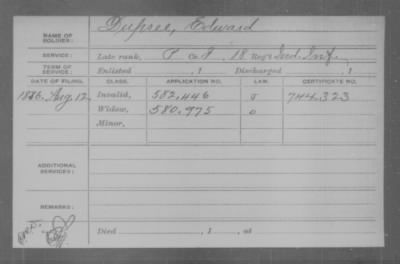 NAME OF SOLDIER: Dupree, Edward
SERVICE: Late rank, P Co. I, 18 Reg't Ind. Inf.
TERM OF SERVICE: Enlisted , 1 Discharged , 1
DATE OF FILING. CLASS. APPLICATION NO. LAW. CERTIFICATE NO.
1886, Aug. 12 Invalid, 582,446 J 744,323
Widow, 580,975 O
Minor,
ADDITIONAL SERVICES:
REMARKS:
Died , 1 , at